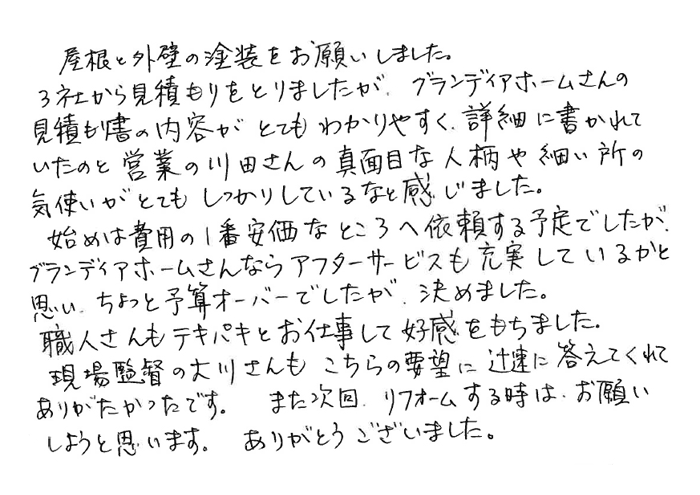 屋根と外壁の塗装をお願いしました。
3社から見積もりをとりましたが、ブランディアホームさんの
見積もり書の内容がとてもわかりやすく、詳細に書かれて
いたのと営業の川田さんの真面目な人柄や細い所の
気使いがとてもしっかりしているなと感じました。
始めは費用の1番安価なところへ依頼する予定でしたが、
ブランディアホームさんならアフターサービスも充実しているかと
思い、ちょっと予算オーバーでしたが、決めました。
職人さんもテキパキとお仕事して好感をもちました。
現場監督の大川さんもこちらの要望に迅速に答えてくれて
ありがたかったです。 また次回、リフォームする時は、お願い
しようと思います。 ありがとうございました。